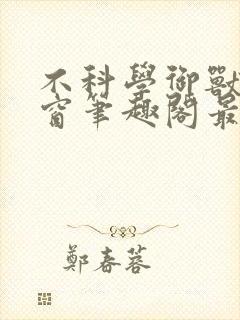 不科學御獸
窗筆趣閣最
鄭春蓉